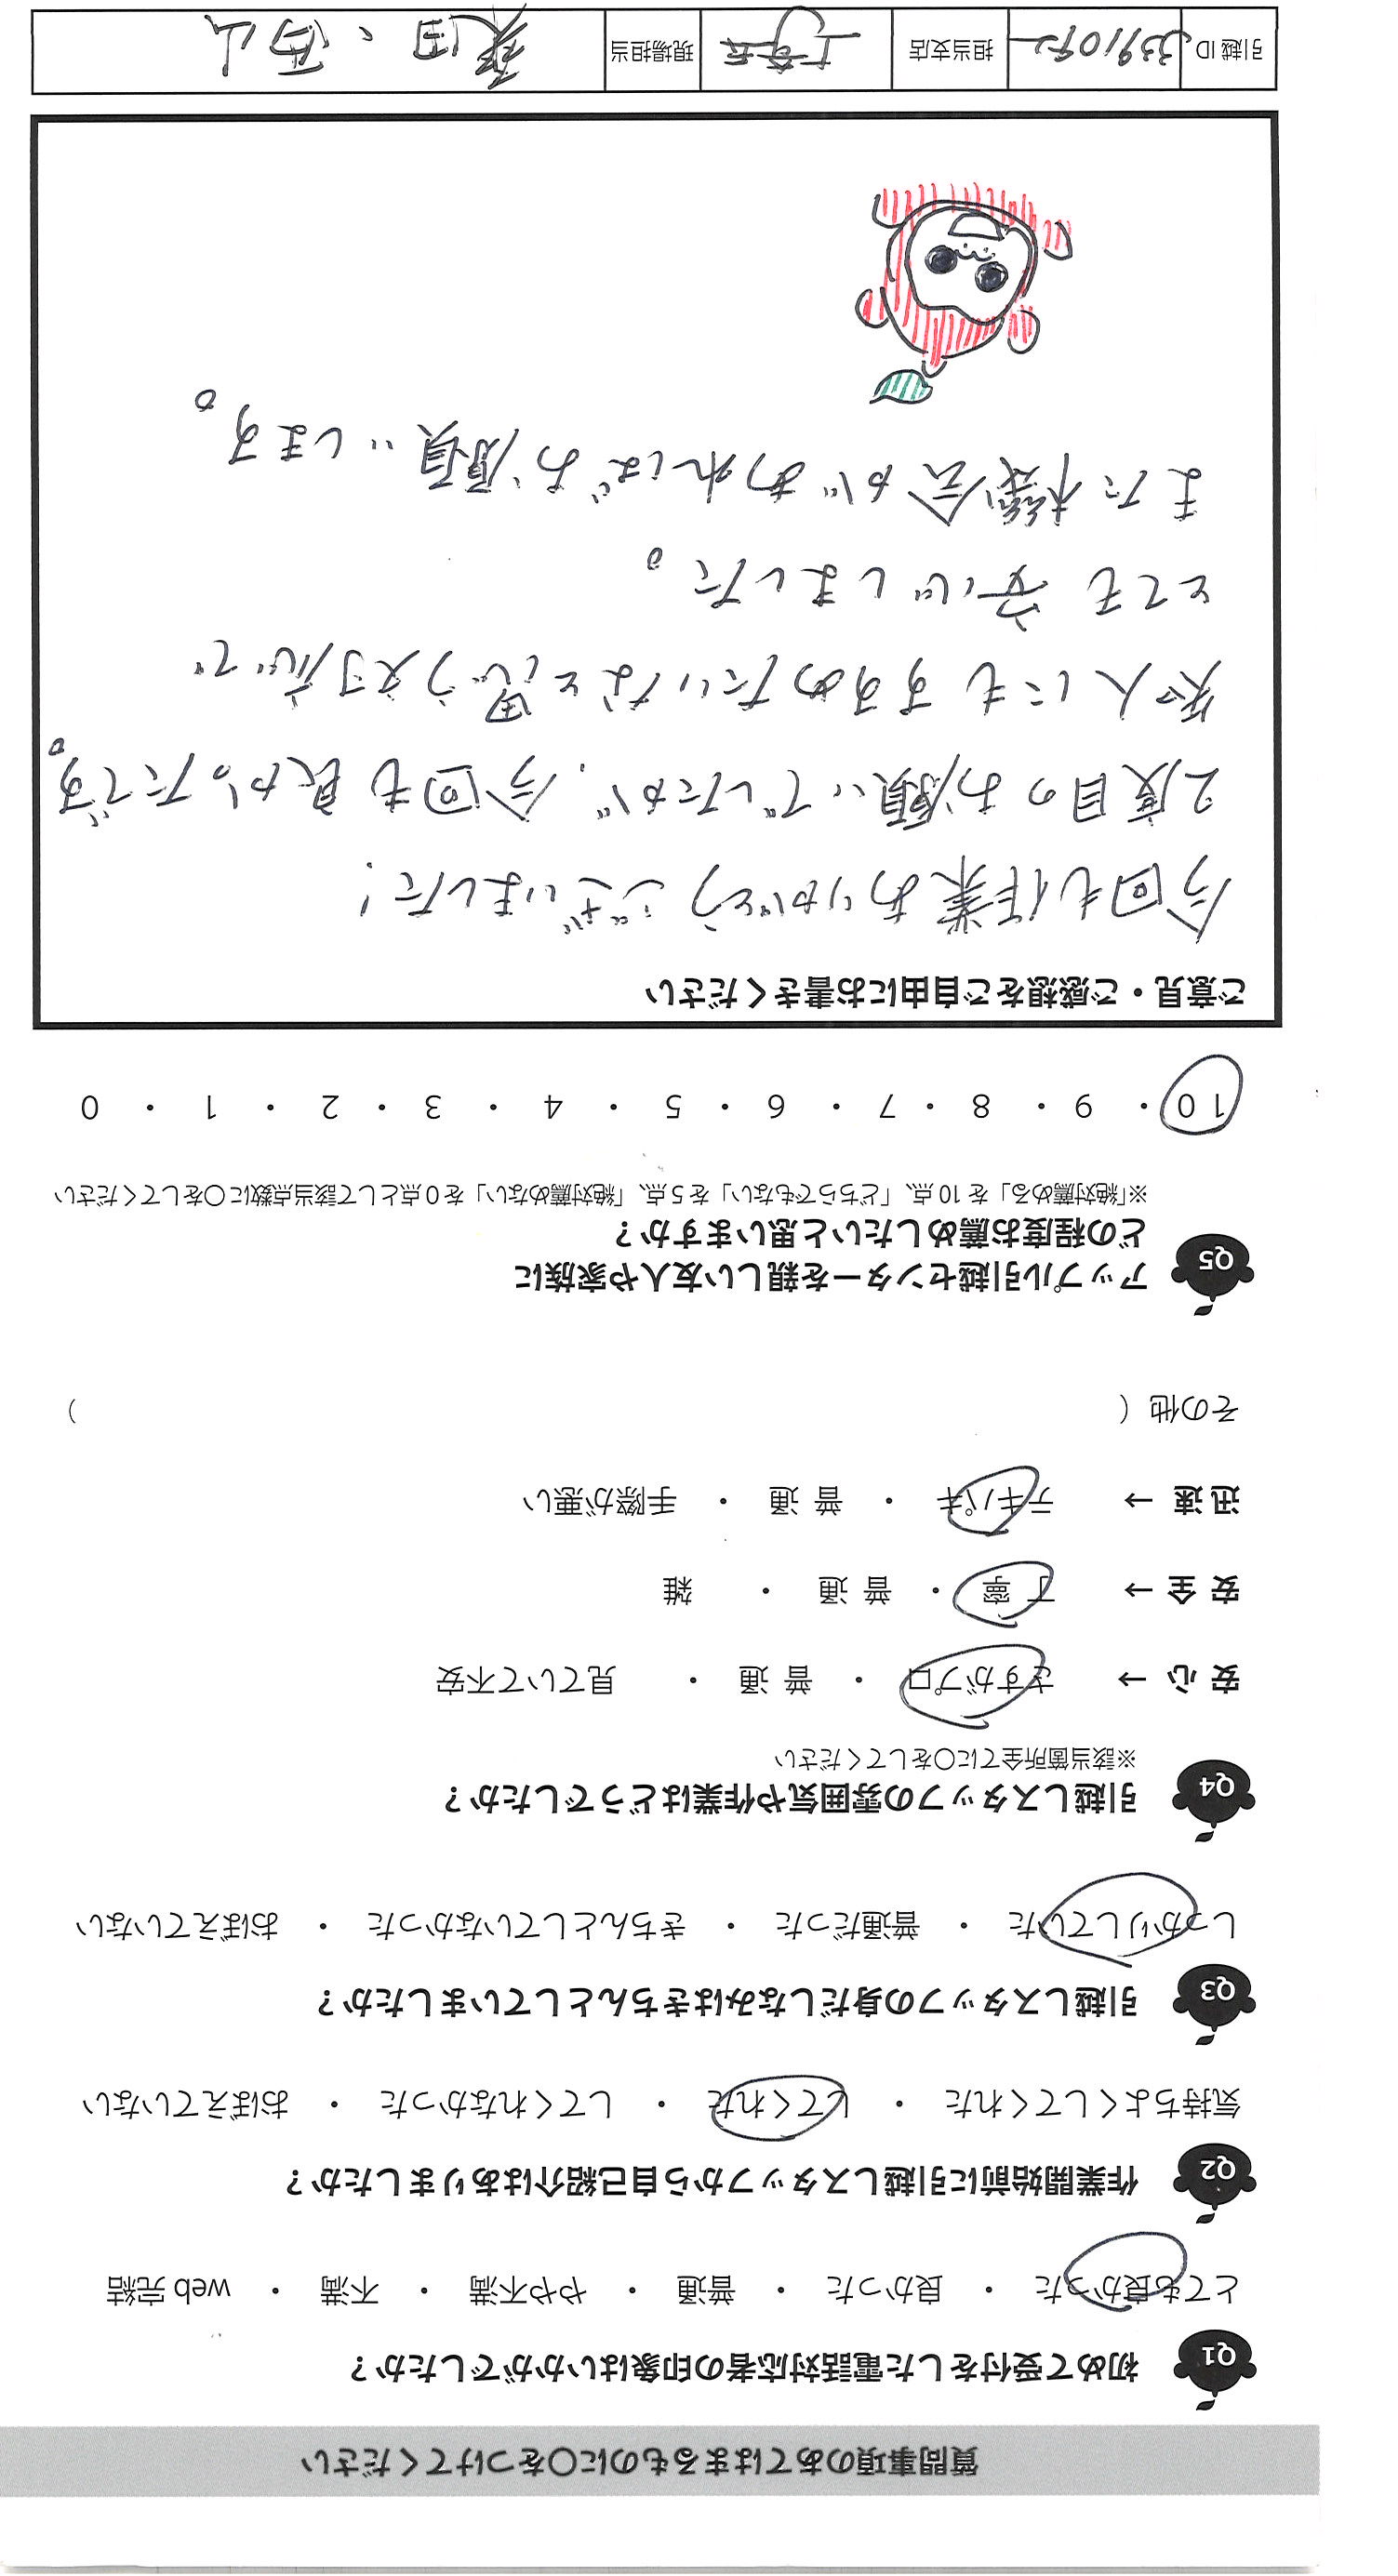 質問事項のあてはまるものに〇をつけてください
Q1 初めて受付をした電話対応者の印象はいかがでしたか？
とても良かった ・ 良かった ・ 普通 ・ やや不満 ・ 不満 ・ web 完結
Q2 作業開始前に引越しスタッフから自己紹介はありましたか？
気持ちよくしてくれた ・ してくれた ・ してくれなかった ・ おぼえていない
Q3 引越しスタッフの身だしなみはきちんとしていましたか？
しっかりしていた ・ 普通だった ・ きちんとしていなかった ・ おぼえていない
Q4 引越しスタッフの雰囲気や作業はどうでしたか？
※該当箇所全てに〇をしてください
安 心 → さすがプロ ・ 普 通 ・ 見ていて不安
安 全 → 丁 寧 ・ 普 通 ・ 雑
迅 速 → テキパキ ・ 普 通 ・ 手際が悪い
その他（ ）
Q5 アップル引越センターを親しい友人や家族に
どの程度お薦めしたいと思いますか？
※「絶対薦める」を 10 点、「どちらでもない」を 5 点、「絶対薦めない」を 0 点として該当点数に〇をしてください
10 ・ 9 ・ 8 ・ 7 ・ 6 ・ 5 ・ 4 ・ 3 ・ 2 ・ 1 ・ 0
ご意見・ご感想をご自由にお書きください
今回も作業ありがとうございました！
2度目のお願いでしたが、今回も良かったです。
知人にもすすめたいなと思う対応で
とても安心しました。
また機会があればお願いします。
引越 ID 担当支店 現場担当